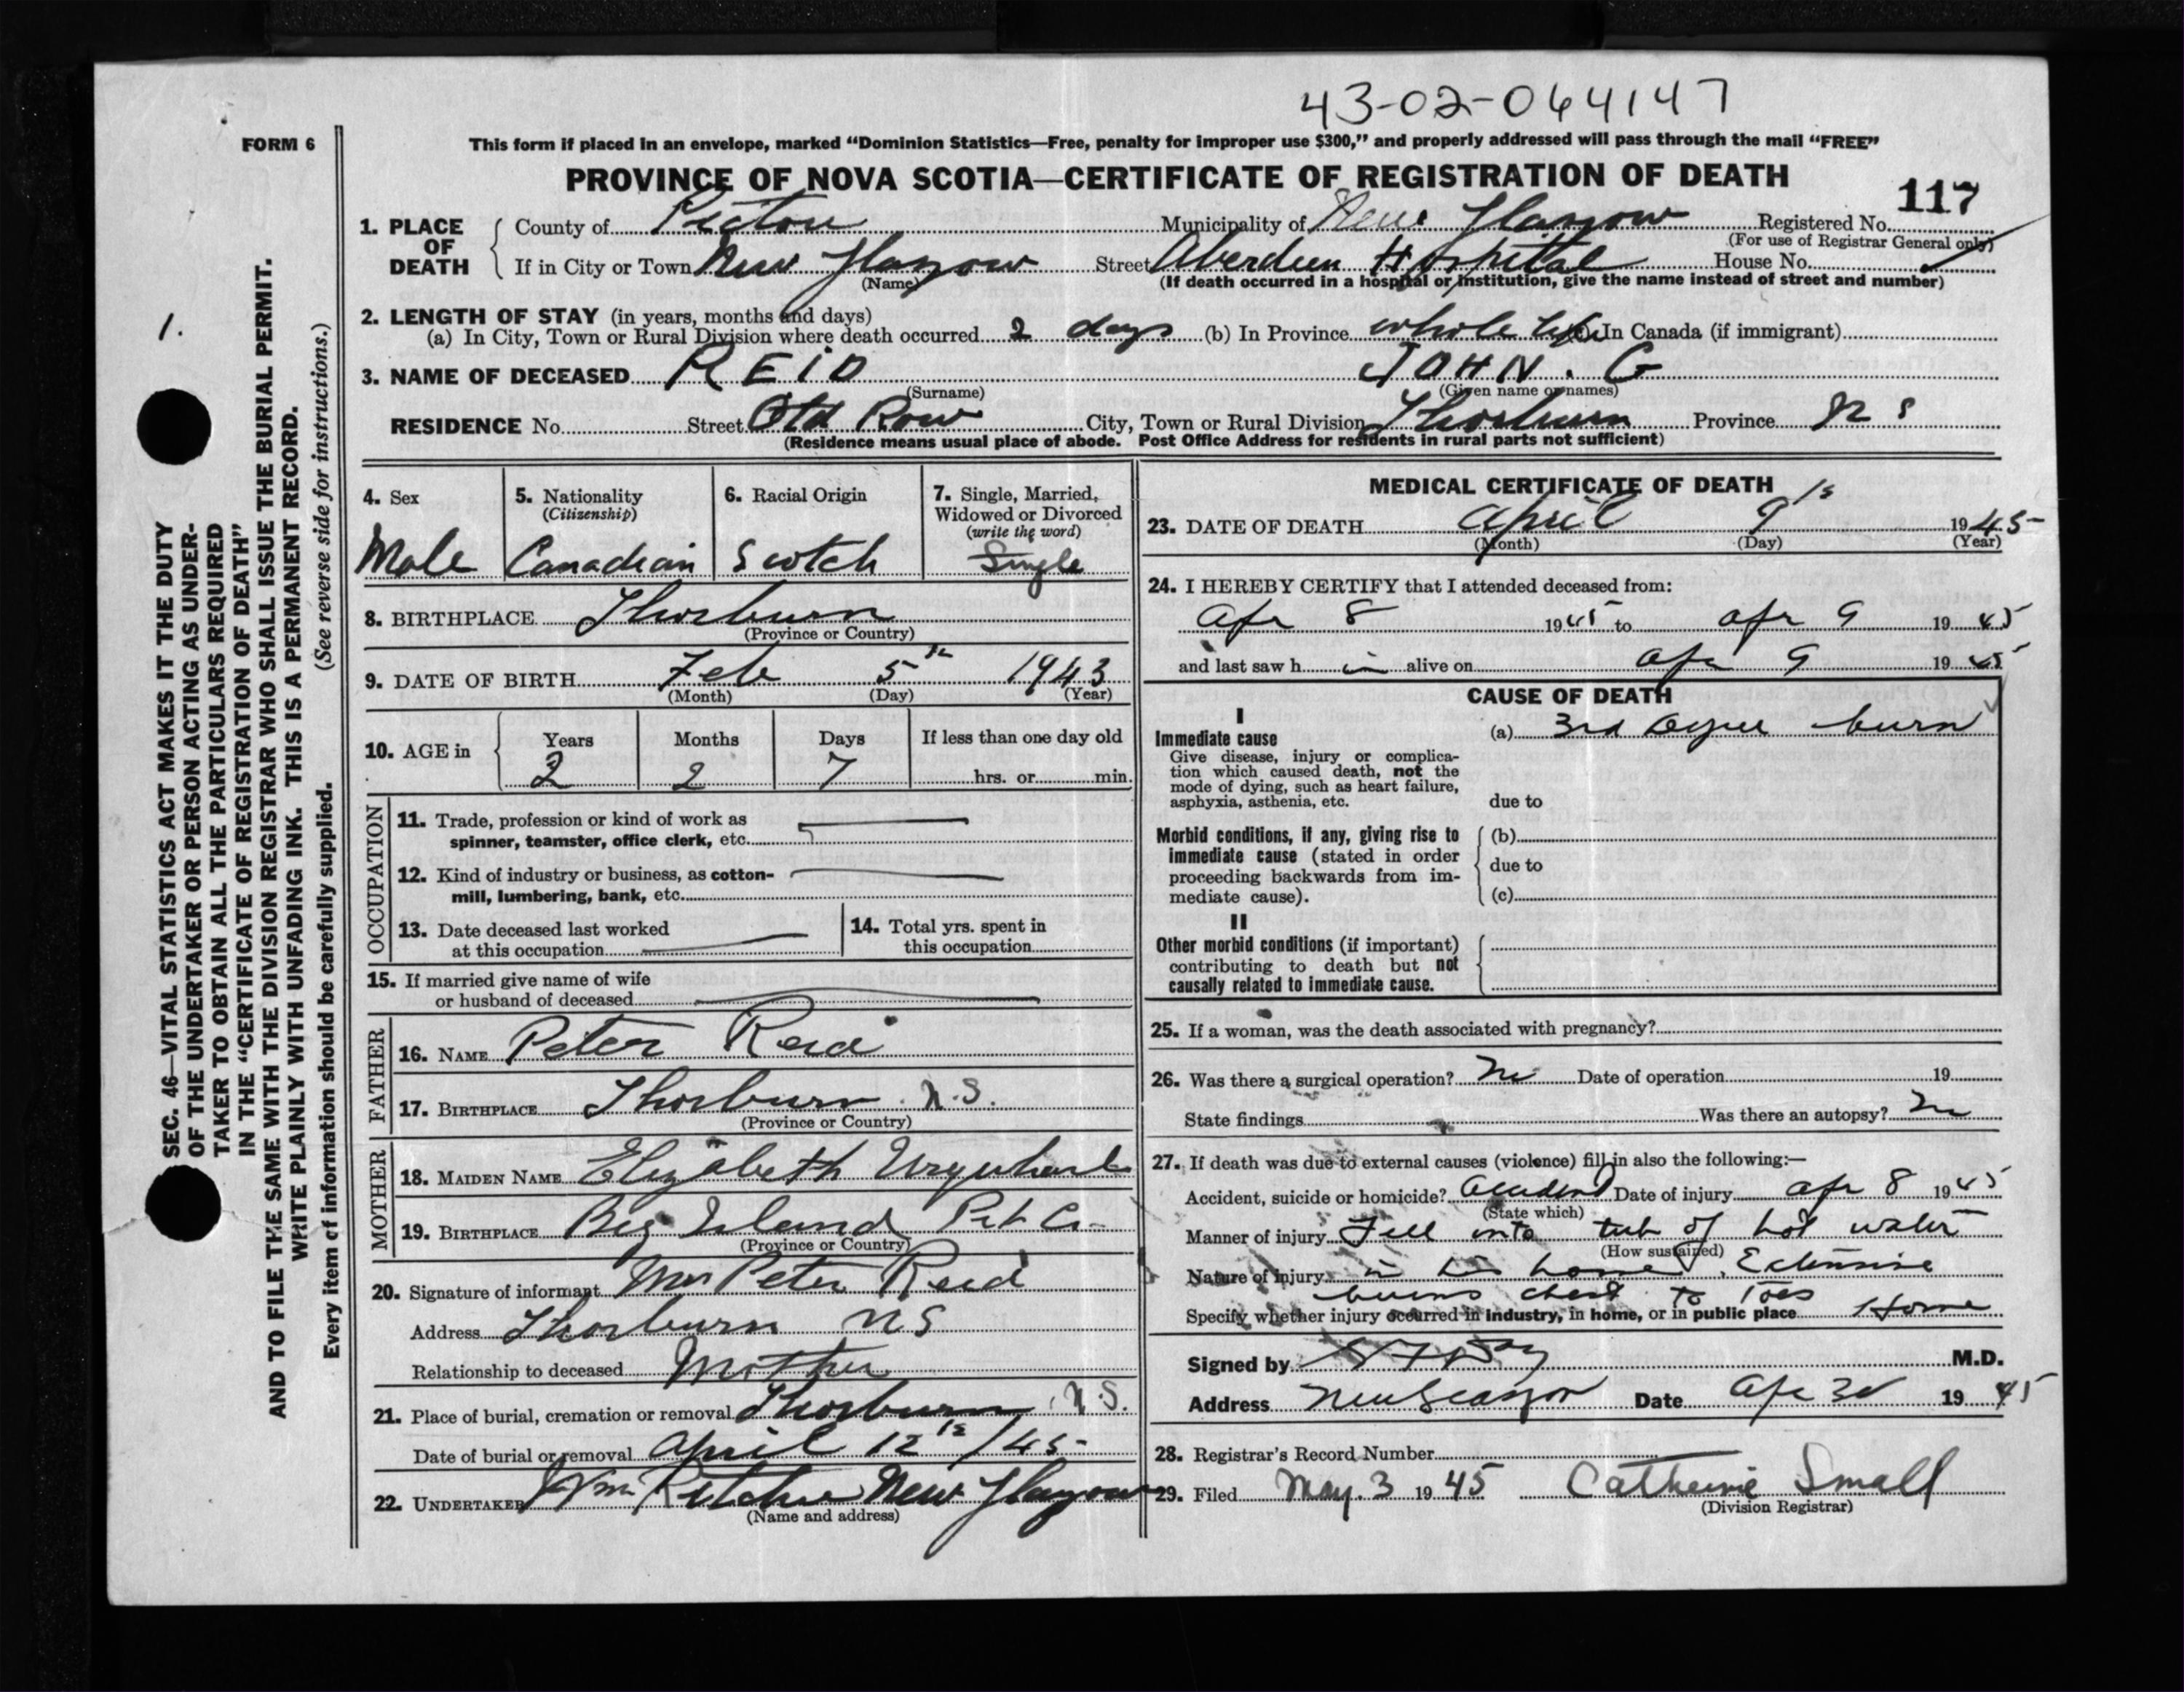 43-02-064147
FORM 6
This form if placed in an envelope, marked “Dominion Statistics—Free, penalty for improper use $300,” and properly addressed will pass through the mail “FREE”
PROVINCE OF NOVA SCOTIA—CERTIFICATE OF REGISTRATION OF DEATH
117
1. PLACE OF DEATH
County of Pictou Municipality of New Glasgow Registered No.
(For use of Registrar General only)
If in City or Town New Glasgow Street Aberdeen Hospital House No.
(Name) (If death occurred in a hospital or institution, give the name instead of street and number)
2. LENGTH OF STAY (in years, months and days)
(a) In City, Town or Rural Division where death occurred 2 days (b) In Province whole life (c) In Canada (if immigrant)
3. NAME OF DECEASED REID JOHN. G
(Surname) (Given name or names)
RESIDENCE No. Street Old Row City, Town or Rural Division Thorburn Province N S
(Residence means usual place of abode. Post Office Address for residents in rural parts not sufficient)
4. Sex
Male
5. Nationality
(Citizenship)
Canadian
6. Racial Origin
Scotch
7. Single, Married,
Widowed or Divorced
(write the word)
Single
8. BIRTHPLACE Thorburn
(Province or Country)
9. DATE OF BIRTH Feb 5th 1943
(Month) (Day) (Year)
10. AGE in
Years Months Days If less than one day old
2 2 7 hrs. or min.
OCCUPATION
11. Trade, profession or kind of work as
spinner, teamster, office clerk, etc.
12. Kind of industry or business, as cotton-
mill, lumbering, bank, etc.
13. Date deceased last worked
at this occupation
14. Total yrs. spent in
this occupation
15. If married give name of wife
or husband of deceased
FATHER
16. NAME Peter Reid
17. BIRTHPLACE Thorburn. N.S.
(Province or Country)
MOTHER
18. MAIDEN NAME Elizabeth Urquhart
19. BIRTHPLACE Big Island Pict Co.
(Province or Country)
20. Signature of informant Mrs Peter Reid
Address Thorburn NS
Relationship to deceased Mother
21. Place of burial, cremation or removal Thorburn, N.S.
Date of burial or removal April 12th/45
22. UNDERTAKER Ritchie New Glasgow
(Name and address)
MEDICAL CERTIFICATE OF DEATH
23. DATE OF DEATH April 9th 1945
(Month) (Day) (Year)
24. I HEREBY CERTIFY that I attended deceased from:
Apr 8 1945 to Apr 9 1945
and last saw h im alive on Apr 9 1945
CAUSE OF DEATH
I
Immediate cause
Give disease, injury or complica-
tion which caused death, not the
mode of dying, such as heart failure,
asphyxia, asthenia, etc.
(a) 3rd degree burn
due to
Morbid conditions, if any, giving rise to
immediate cause (stated in order
proceeding backwards from im-
mediate cause).
(b)
due to
(c)
II
Other morbid conditions (if important)
contributing to death but not
causally related to immediate cause.
25. If a woman, was the death associated with pregnancy?
26. Was there a surgical operation? No Date of operation 19
State findings Was there an autopsy? No
27. If death was due to external causes (violence) fill in also the following:—
Accident, suicide or homicide? Accident Date of injury Apr 8 1945
(State which)
Manner of injury Fell into tub of hot water
(How sustained)
Nature of injury in his home. Extensive
burns chest to toes
Specify whether injury occurred in industry, in home, or in public place Home
Signed by M.D.
Address New Glasgow Date Apr 30 1945
28. Registrar's Record Number
29. Filed May. 3 1945 Catherine Small
(Division Registrar)
1.
SEC. 46—VITAL STATISTICS ACT MAKES IT THE DUTY
OF THE UNDERTAKER OR PERSON ACTING AS UNDER-
TAKER TO OBTAIN ALL THE PARTICULARS REQUIRED
IN THE “CERTIFICATE OF REGISTRATION OF DEATH”
AND TO FILE THE SAME WITH THE DIVISION REGISTRAR WHO SHALL ISSUE THE BURIAL PERMIT.
WRITE PLAINLY WITH UNFADING INK. THIS IS A PERMANENT RECORD.
Every item of information should be carefully supplied. (See reverse side for instructions.)